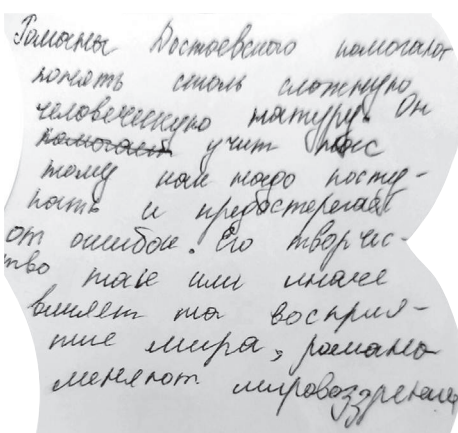 Романы Достоевского помогают
понать столь сложную
человеческую натуру. Он
помогает учит нас
тому как надо посту-
пать и предостерегает
от ошибок. Его творчес-
тво так или иначе
влияет на восприя-
тие мира, романы
меняют мировоззрение